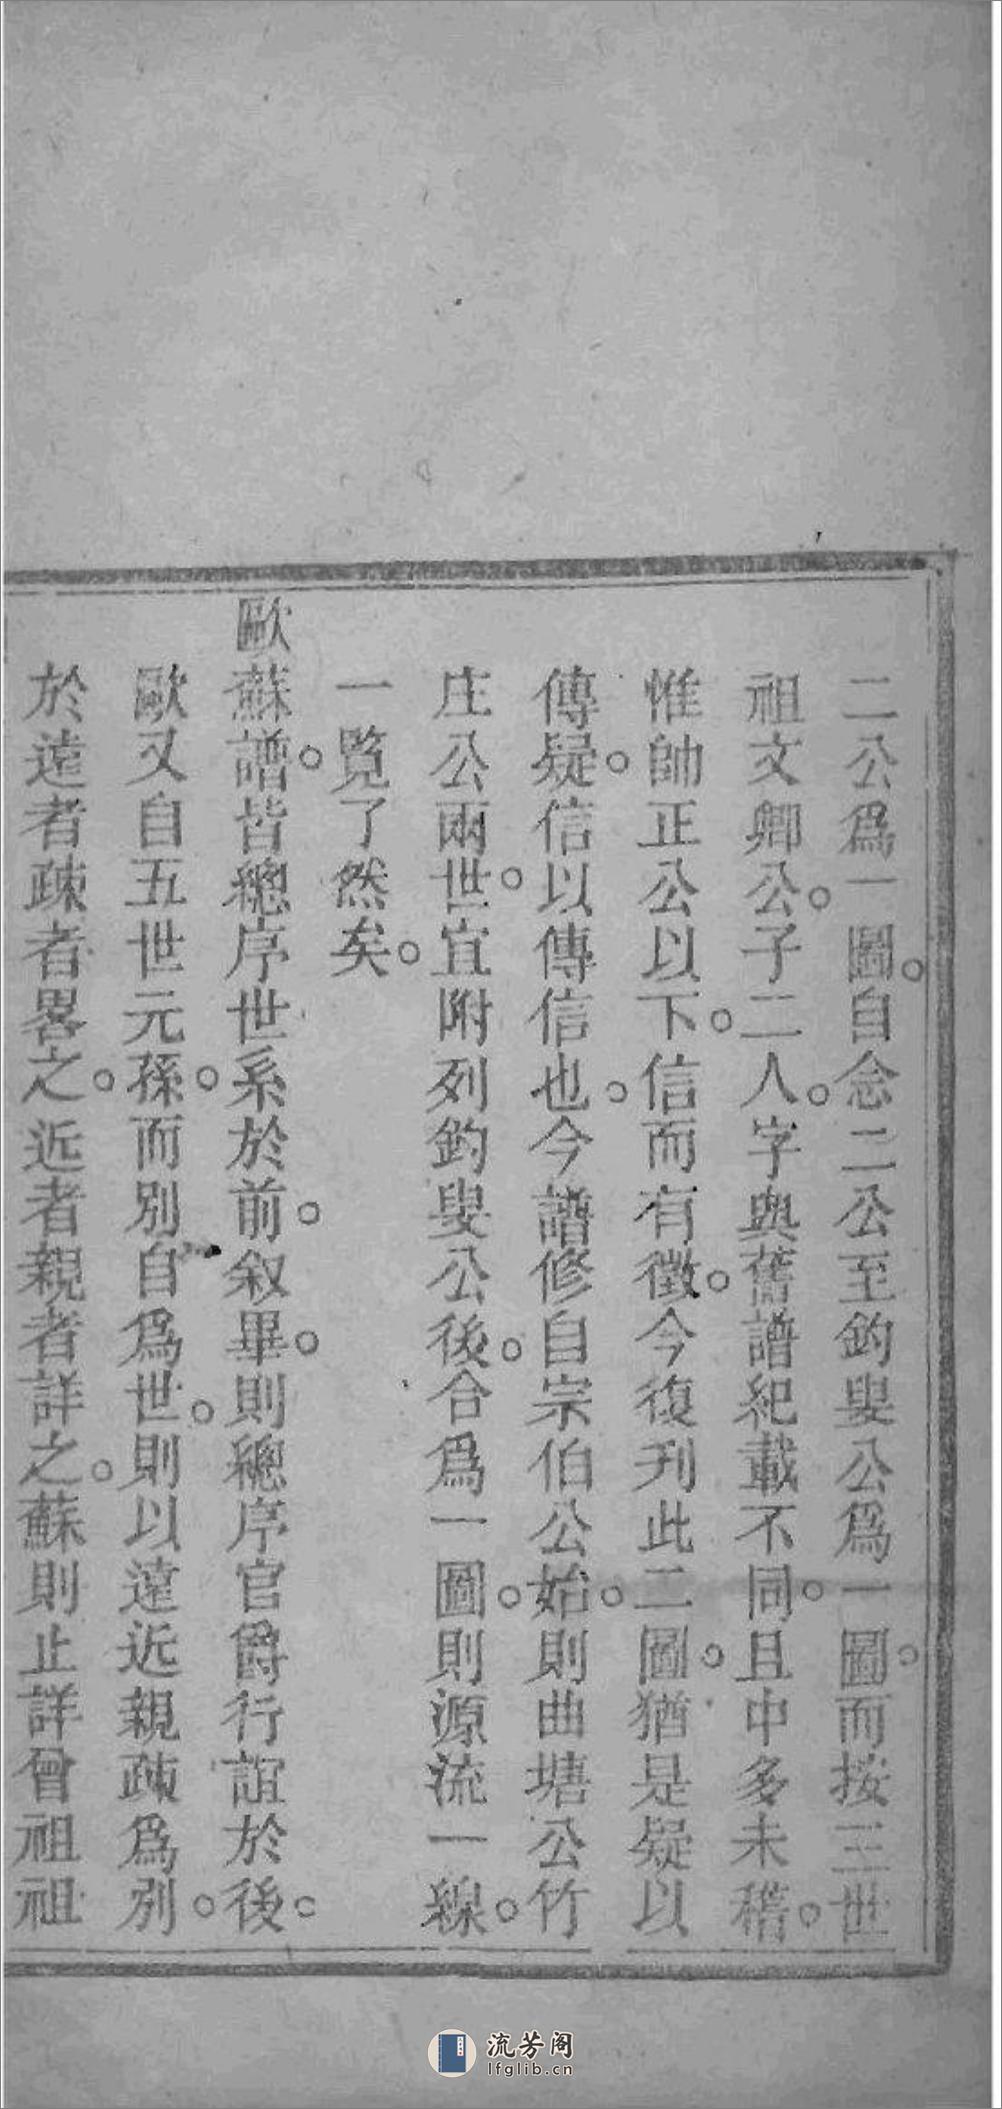 二公爲一圖。自念二公至鈞叟公爲一圖。而按三世
祖文卿公。子二人。字與舊譜紀載不同。且中多未稽。
惟帥正公以下。信而有徵。今復刋此二圖。猶是疑以
傳疑。信以傳信也。今譜修自宗伯公始。則曲塘公竹
庄公兩世。宜附列鈞叟公後。合爲一圖。則源流一線。
一覧了然矣。
歐蘇譜。皆總序世系於前。叙畢。則總序官爵行誼於後。
歐又自五世元孫。而別自爲世。則以遠近親疎爲列。
於遠者疎者畧之。近者親者詳之。蘇則止詳曾祖祖
流芳阁
lfglib.cn